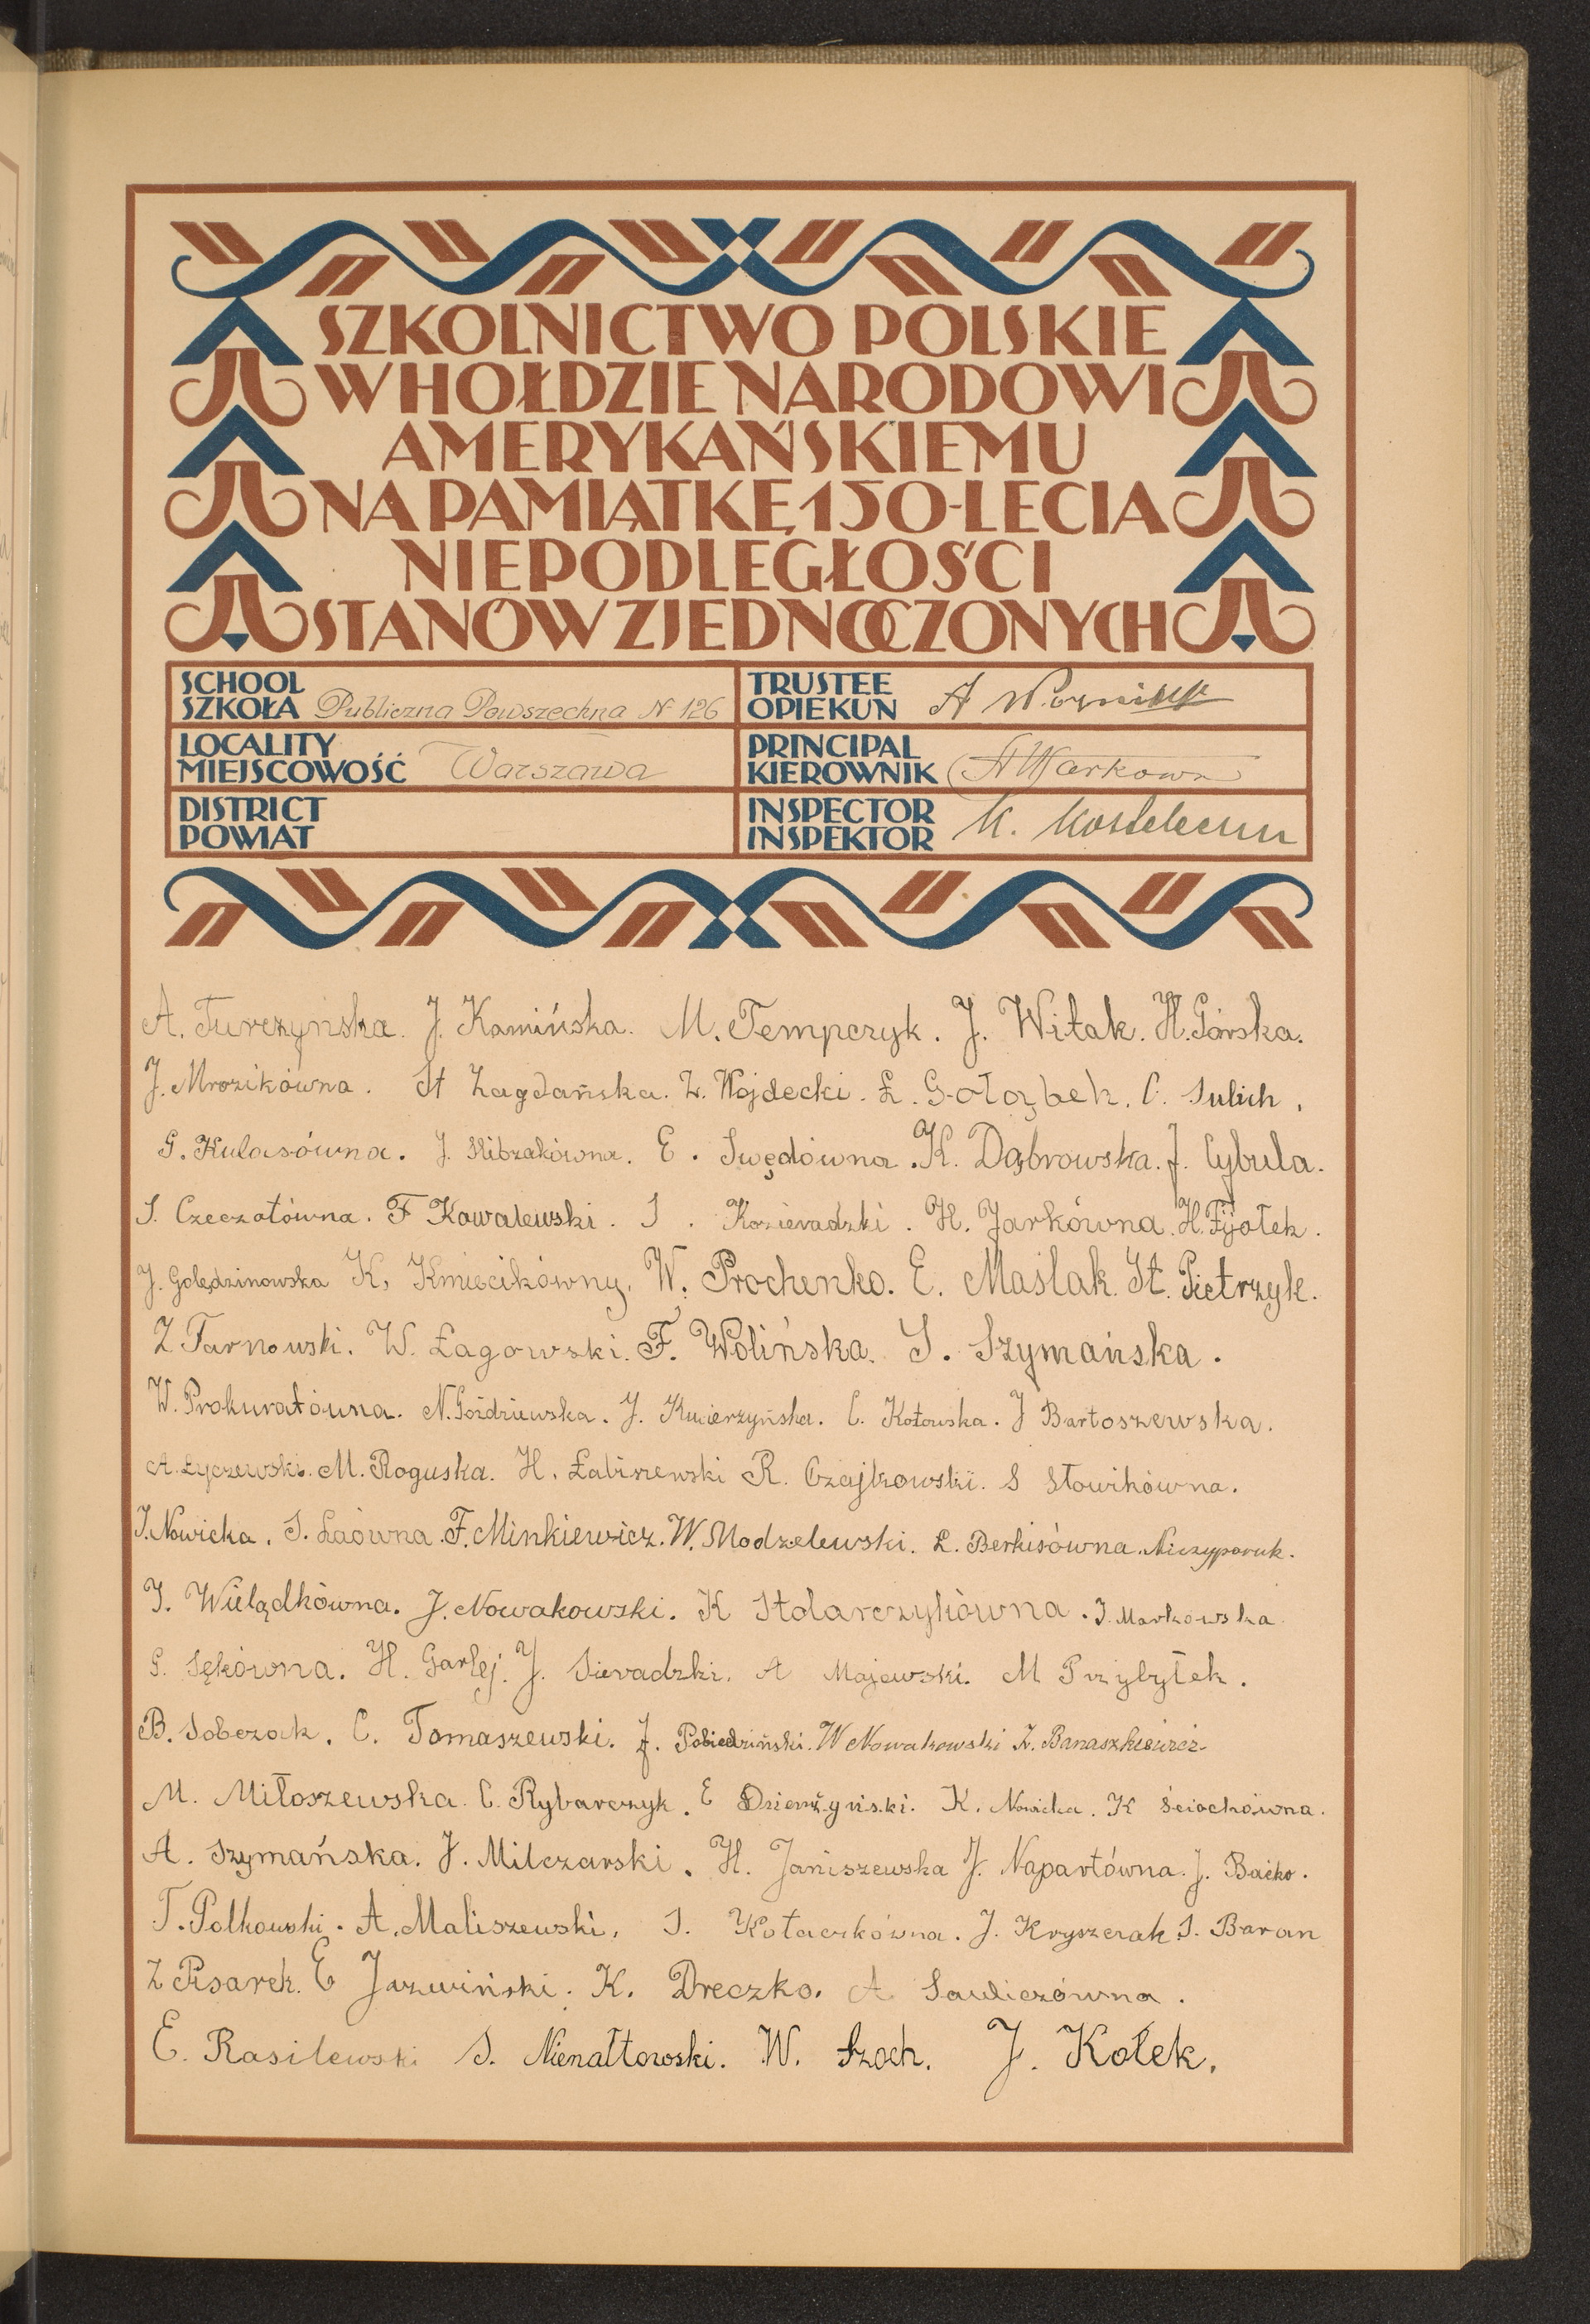 SZKOLNICTWO POLSKIE
W HOŁDZIE NARODOWI
AMERYKAŃSKIEMU
NA PAMIĄTKĘ 150-LECIA
NIEPODLEGŁOŚCI
STANÓW ZJEDNOCZONYCH
SCHOOL
SZKOŁA Publiczna Powszechna N 126
TRUSTEE
OPIEKUN A
LOCALITY
MIEJSCOWOŚĆ Warszawa
PRINCIPAL
KIEROWNIK
DISTRICT
POWIAT
INSPECTOR
INSPEKTOR K.
A. Turczyńska. J. Kamińska. M. Tempczyk. J. Witak. H. Górska.
J. Mrozikówna. St Zagdańska. Z. Wojdecki. Ł. Gołąbek. C. Sulich.
G. Kulasówna. J. Skibzakówna. E. Swędówna. K. Dąbrowska. J. Cybula.
S. Czeczotówna. F Kowalewski. S. Kozieradzki. H. Jarkówna. H. Fijołek.
J. Golędzinowska K. Kmiecikówny. W. Prochenko. E. Maślak. St. Pietrzyk.
Z Tarnowski. W. Łagowski. F. Wolińska. S. Szymańska.
W. Prokuratówna. N. Goździewska. J. Kwierzyńska. C. Kotowska. J Bartoszewska.
A. Łyczewski. M. Roguska. H. Łabiszewski R. Czajkowski. S Słowikówna.
J. Nowicka. S. Laówna. F. Minkiewicz. W. Modzelewski. L. Berkisówna. Niczyporuk.
J. Wielądkówna. J. Nowakowski. K Stolarczykówna. J. Markowska
G. Sękówna. H. Garlej. J. Sieradzki. A Majewski. M Przybyłek.
B. Sobczak. C. Tomaszewski. J. Pobiedziński. W Nowakowski Z. Banaszkiewicz
M. Miłoszewska. C. Rybarczyk. E Dzierżyński. K. Nowicka. K Ściochówna.
A. Szymańska. J. Milczarski. H. Janiszewska J. Napartówna. J. Baćko.
T. Polkowski. A. Maliszewski. S. Kołaczkówna. J. Kryszczak S. Baran
Z Pisarek. E Jazwiński. K. Dreczko. A Sawliczówna.
E. Rasilewski S. Nienałtowski. W. Szoch. J. Kołek.